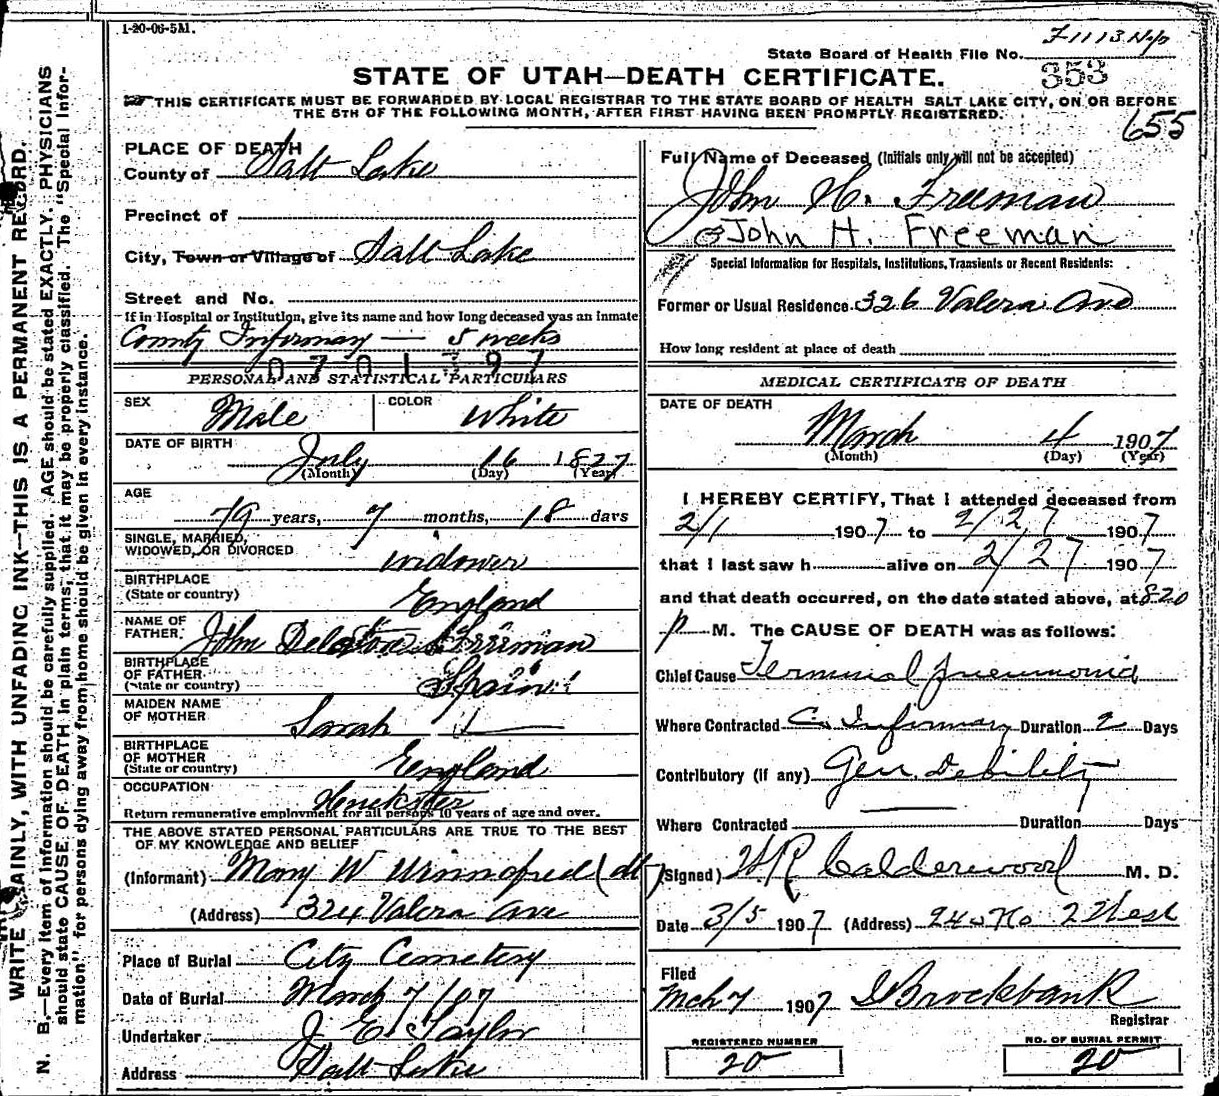 1-20-06-5M.
State Board of Health File No.
353
STATE OF UTAH—DEATH CERTIFICATE.
THIS CERTIFICATE MUST BE FORWARDED BY LOCAL REGISTRAR TO THE STATE BOARD OF HEALTH SALT LAKE CITY, ON OR BEFORE
THE 5TH OF THE FOLLOWING MONTH, AFTER FIRST HAVING BEEN PROMPTLY REGISTERED.
655
WRITE PLAINLY, WITH UNFADING INK—THIS IS A PERMANENT RECORD.
N. B.—Every item of information should be carefully supplied. AGE should be stated EXACTLY. PHYSICIANS
should state CAUSE OF DEATH in plain terms, that it may be properly classified. The "Special Infor-
mation" for persons dying away from home should be given in every instance.
PLACE OF DEATH
County of Salt Lake
Precinct of
City, Town or Village of Salt Lake
Street and No.
If in Hospital or Institution, give its name and how long deceased was an inmate
County Infirmary — 5 weeks
PERSONAL AND STATISTICAL PARTICULARS
SEX Male COLOR White
DATE OF BIRTH
July 16 1827
(Month) (Day) (Year)
AGE
79 years, 7 months, 18 days
SINGLE, MARRIED,
WIDOWED, OR DIVORCED widower
BIRTHPLACE
(State or country) England
NAME OF
FATHER. John Freeman
BIRTHPLACE
OF FATHER
(State or country) Spain
MAIDEN NAME
OF MOTHER Sarah
BIRTHPLACE
OF MOTHER
(State or country) England
OCCUPATION
Huckster
Return remunerative employment for all persons 10 years of age and over.
THE ABOVE STATED PERSONAL PARTICULARS ARE TRUE TO THE BEST
OF MY KNOWLEDGE AND BELIEF
(Informant) Mary W
(Address) 324 Valera Ave
Place of Burial City Cemetery
Date of Burial March 7/07
Undertaker J E Taylor
Address Salt Lake
Full Name of Deceased (Initials only will not be accepted)
John H. Freeman
John H. Freeman
Special Information for Hospitals, Institutions, Transients or Recent Residents:
Former or Usual Residence 326 Valera Ave
How long resident at place of death
MEDICAL CERTIFICATE OF DEATH
DATE OF DEATH
March 4 1907
(Month) (Day) (Year)
I HEREBY CERTIFY, That I attended deceased from
2/1 1907 to 2/27 1907
that I last saw h alive on 2/27 1907
and that death occurred, on the date stated above, at 8-20
p M. The CAUSE OF DEATH was as follows:
Chief Cause Terminal pneumonia
Where Contracted C. Infirmary Duration 2 Days
Contributory (if any) Gen. Debility
Where Contracted Duration Days
(Signed) W R Calderwood M. D.
Date 3/5 1907 (Address) 240 No 2 West
Filed
Mch 7 1907 Brockbank
Registrar
REGISTERED NUMBER
20
NO. OF BURIAL PERMIT
20